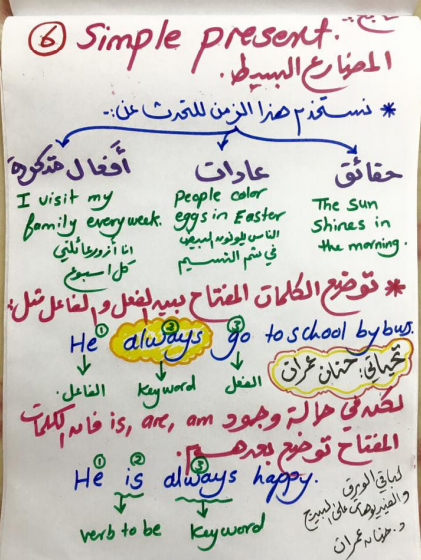 تابع:
⑥ Simple present.
المضارع البسيط.
* نستخدم هذا الزمن للتحدث عن:-
حقائق
عادات
أفعال متكررة
The Sun
shines in
the morning.
People color
eggs in Easter
الناس يلونون البيض
في شم النسيم
I visit my
family every week.
انا أزور عائلتي
كل أسبوع
* توضع الكلمات المفتاح بين الفعل والفاعل مثل:
He ① always ② go ③ to school by bus.
الفاعل.
Keyword
الفعل
تحياتي: حنان عمران
لكن في حالة وجود is, are, am فان الكلمات
المفتاح توضع بعدهم.
He ① is ② always ③ happy.
verb to be
Keyword
لباقي الورق
والفيديوهات على البيدج
د. حنان عمران